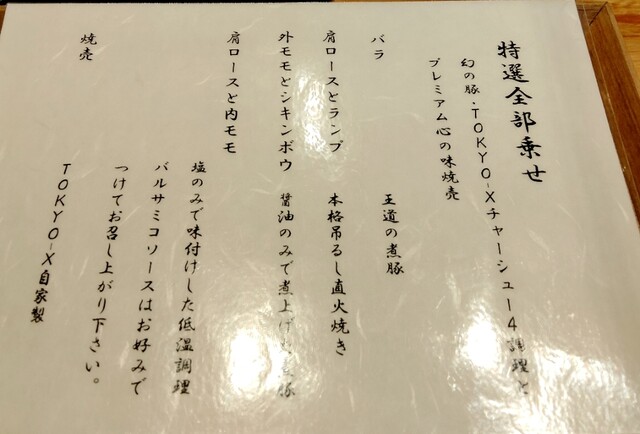 特選全部乗せ
幻の豚・TOKYO-Xチャーシュー4調理と
プレミアム心の味焼売
バラ 王道の煮豚
肩ロースとランプ 本格吊るし直火焼き
外モモとシキンボウ 醤油のみで煮上げ
肩ロースと内モモ 塩のみで味付けした低温調理
バルサミコソースはお好みで
つけてお召し上がり下さい。
焼売 TOKYO-X自家製